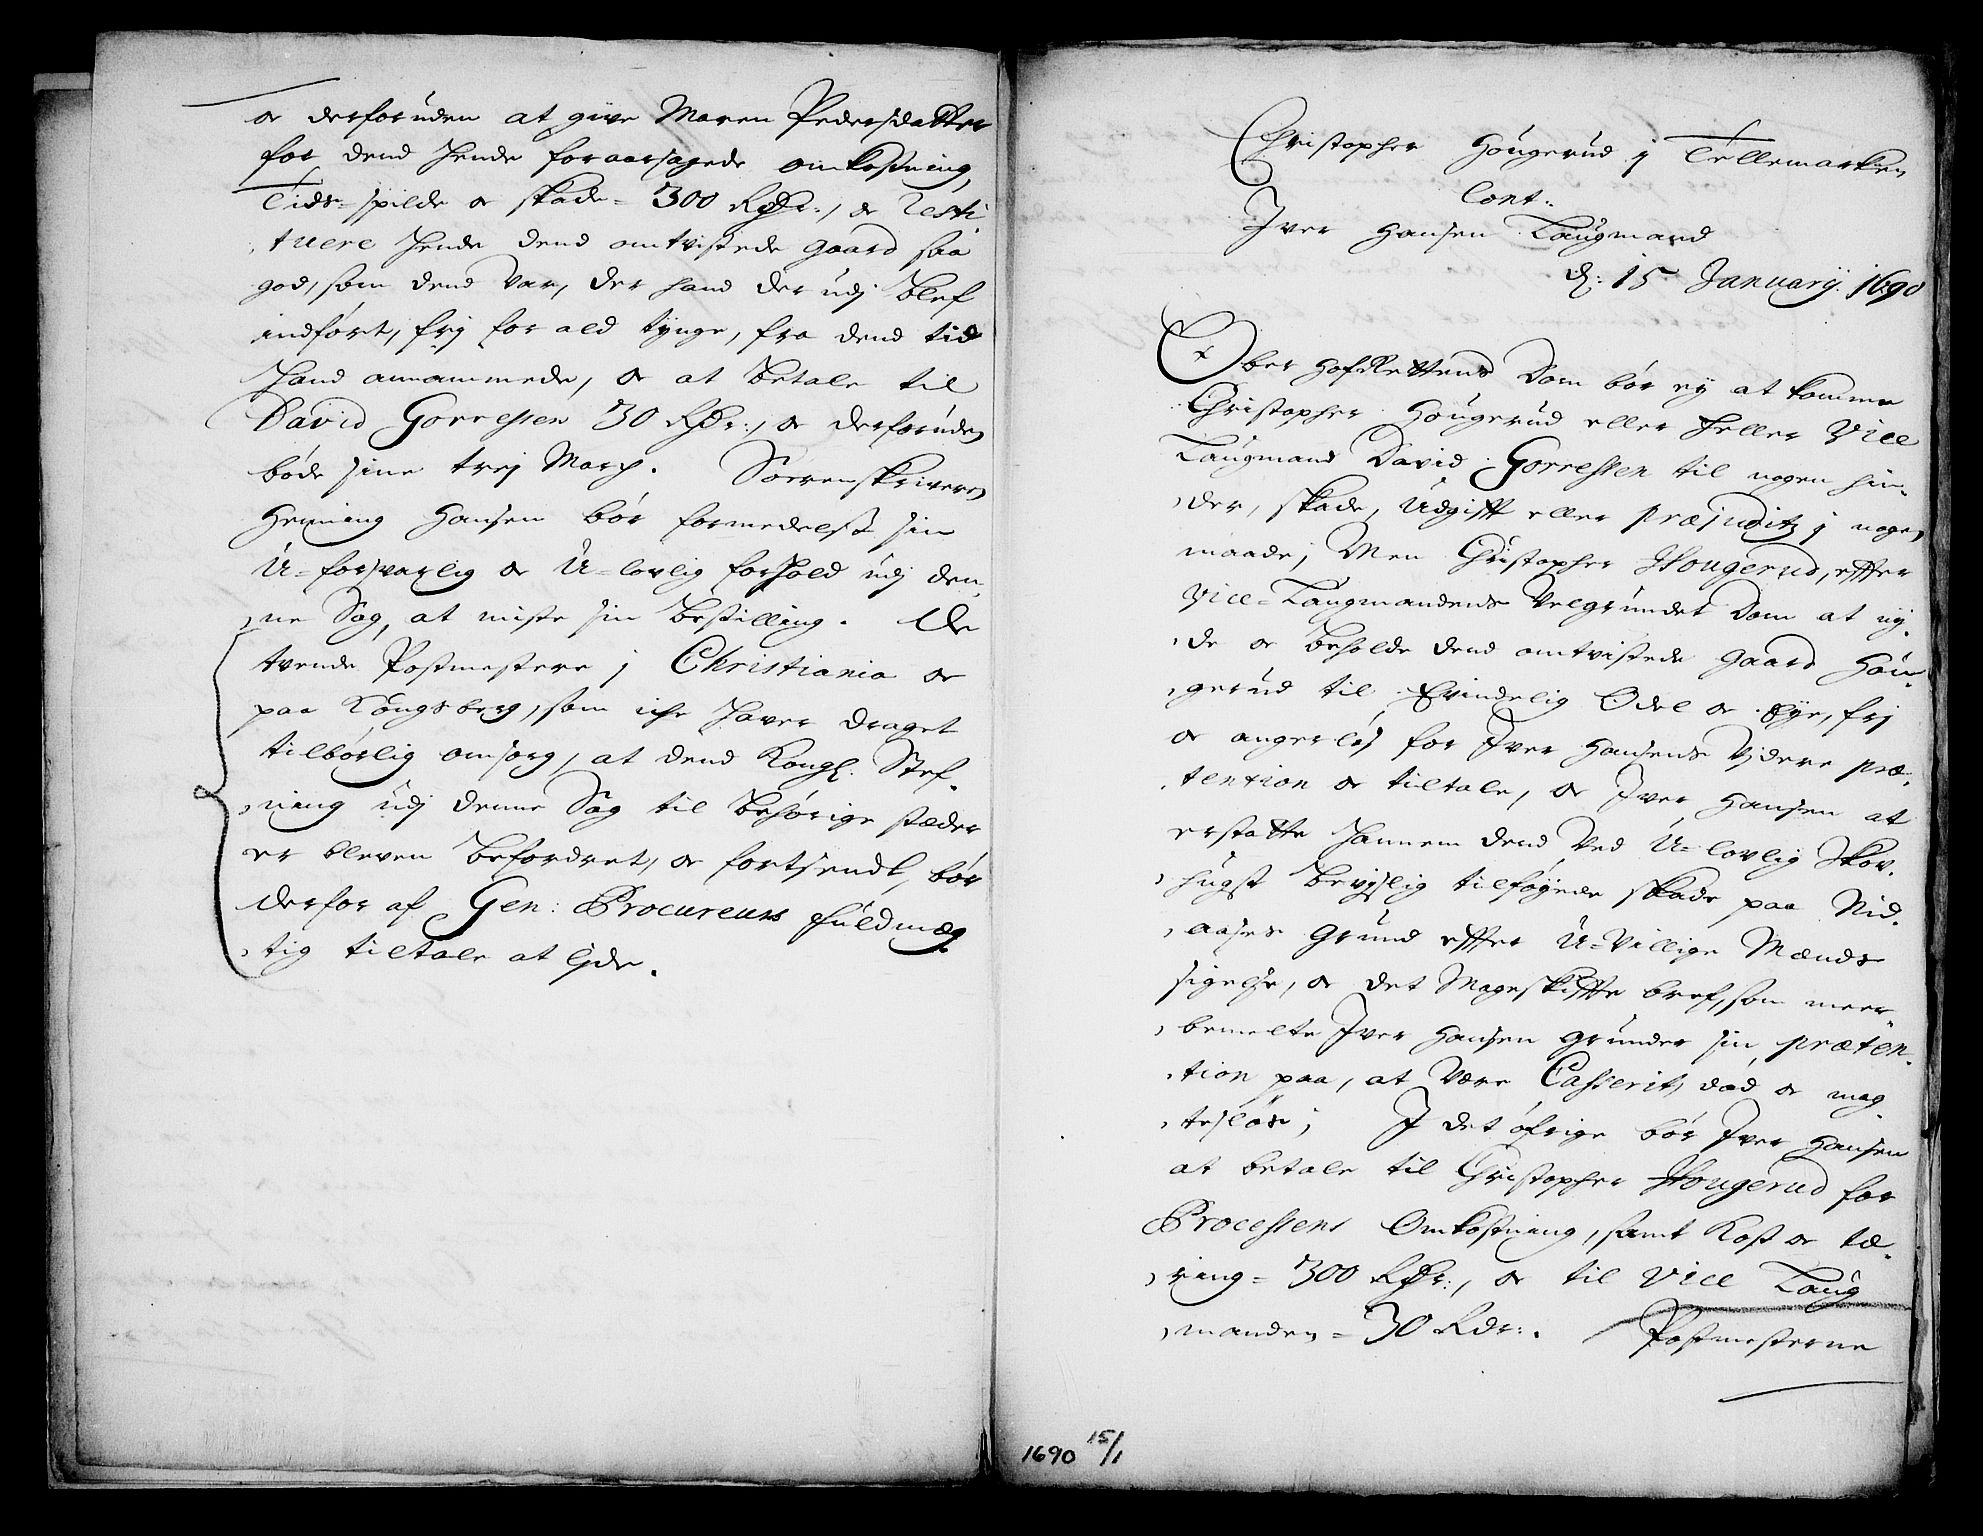 oc derforuden at give Maren Pedersdatter
for dend hende foraarsagede omkostning,
Tids-spilde oc skade = 300 Rdr:, oc resti
tuere hende dend omtvistede gaard saa
god, som dend var, der hand der udj blef
indført, frj for ald tynge, fra dend tid
hand annammede, oc at betale til
David Gorressen 30 Rdr:, oc derforuden
bøde sine trej Marck. Sorenskriveren
Henning Hansen bør formedelst sin
U=forsvarlig oc U=lovlig forhold udj den
ne Sag, at miste sin bestilling. De
tvende Postmestere j Christiania oc
paa Kongsberg, som iche haver draget
tilbørlig omsorg, at dend Kongl. Stef
ning udj denne Sag til behørige stæder
er bleven befordret, oc fortsendt, bør
derfor af Gen: Procureurs fuldmæg
tig tiltale at lyde.
Christopher Hougerud j Tellemarken
Cont:
Iver Hansen Laugmand
d: 15 Januarij 1690
Ober Hof Rettens Dom bør ey at komme
Christopher Hougerud eller heller Vice
Laugmand David Gorressen til nogen hin
der, skade, Udgifft eller præjuditz j nogen
maade; Men Christopher Hougerud, effter
Vice=Laugmandens Velgrundet Dom at ny
de oc beholde dend omtvistede gaard Hou
gerud til Evindelig Odel oc Eye, frj
oc angerløs for Iver Hansens Videre præ
tention oc tiltale, oc Iver Hansen at
erstatte hannem dend Ved U=lovlig Skov
hugst bevislig tilføyede skade paa Nid
aases Grund effter U=Villige Mænds
sigelse, oc det Mageskiffte bref, som meer
bemelte Iver Hansen grunder sin præten
tion paa, at være Casserit, død oc mag
tesløs; I det øfrige bør Iver Hansen
at betale til Christopher Hougerud for
Processens Omkostning, samt Kost oc tæ
ring = 300 Rdr:, oc til Vice Laug
manden = 30 Rdr:. Postmesterne
1690 15/1